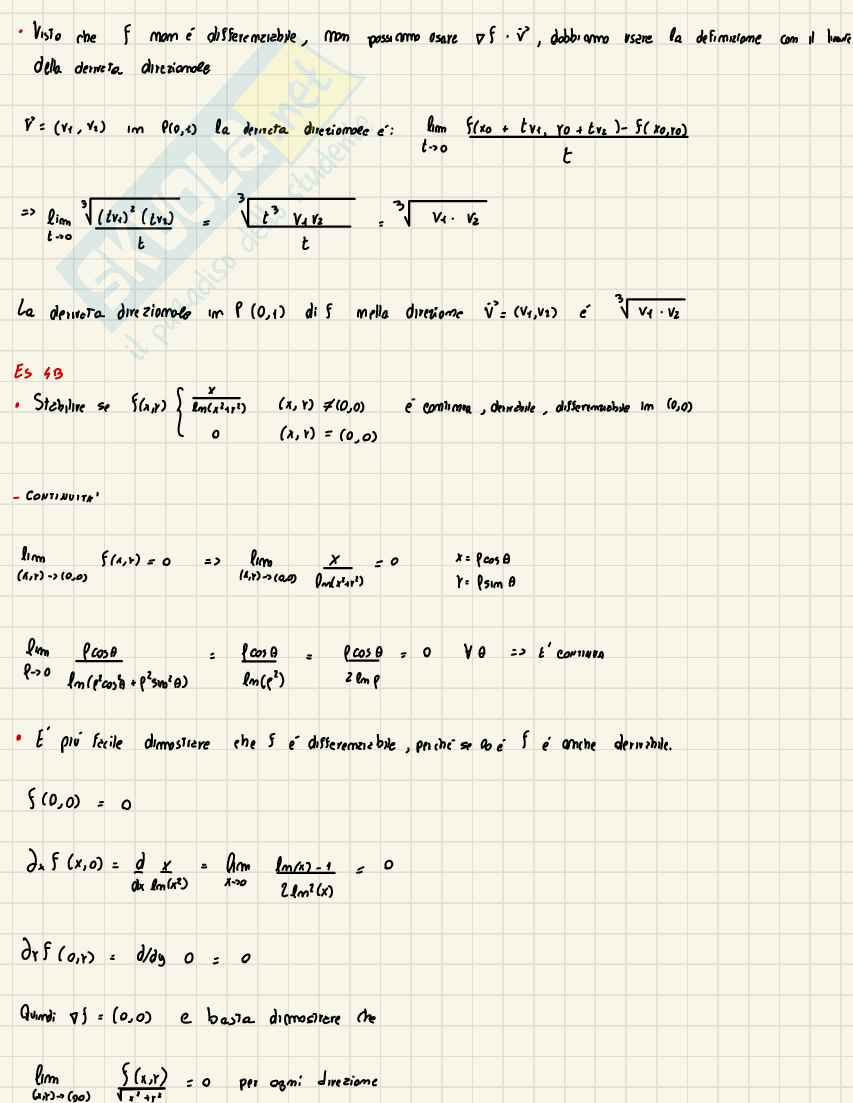 • Visto che f non é differenziabile, non possiamo usare ∇f · v⃗, dobbiamo usare la definizione con il limite
della derivata direzionale
v⃗ = (v₁, v₂) in P(0,1) la derivata direzionale e': lim t→0 (f(x₀ + tv₁, y₀ + tv₂) - f(x₀,y₀)) / t
=> lim t→0 ∛((tv₁)² (tv₂)) / t = ∛(t³ v₁ v₂) / t = ∛(v₁ · v₂)
La derivata direzionale in P(0,1) di f nella direzione v⃗ = (v₁,v₂) é ∛(v₁ · v₂)
Es 4B
• Stabilire se f(x,y) { x / ln(x²+y²) (x,y) ≠ (0,0) é continua, derivabile, differenziabile in (0,0)
0 (x,y) = (0,0)
- CONTINUITA'
lim (x,y)→(0,0) f(x,y) = 0 => lim (x,y)→(0,0) x / ln(x²+y²) = 0 x = ρcosθ
y = ρsinθ
lim ρ→0 ρcosθ / ln(ρ²cos²θ + ρ²sin²θ) = ρcosθ / ln(ρ²) = ρcosθ / 2 ln ρ = 0 ∀θ => E' CONTINUA
• E' piú facile dimostrare che f é differenziabile, perché se lo é f é anche derivabile.
f(0,0) = 0
∂x f(x,0) = d/dx x / ln(x²) = lim x→0 (ln(x) - 1) / 2ln²(x) = 0
∂y f(0,y) = d/dy 0 = 0
Quindi ∇f = (0,0) e basta dimostrare che
lim (x,y)→(0,0) f(x,y) / √(x²+y²) = 0 per ogni direzione
SKUOLA.net
il paradiso dello studente